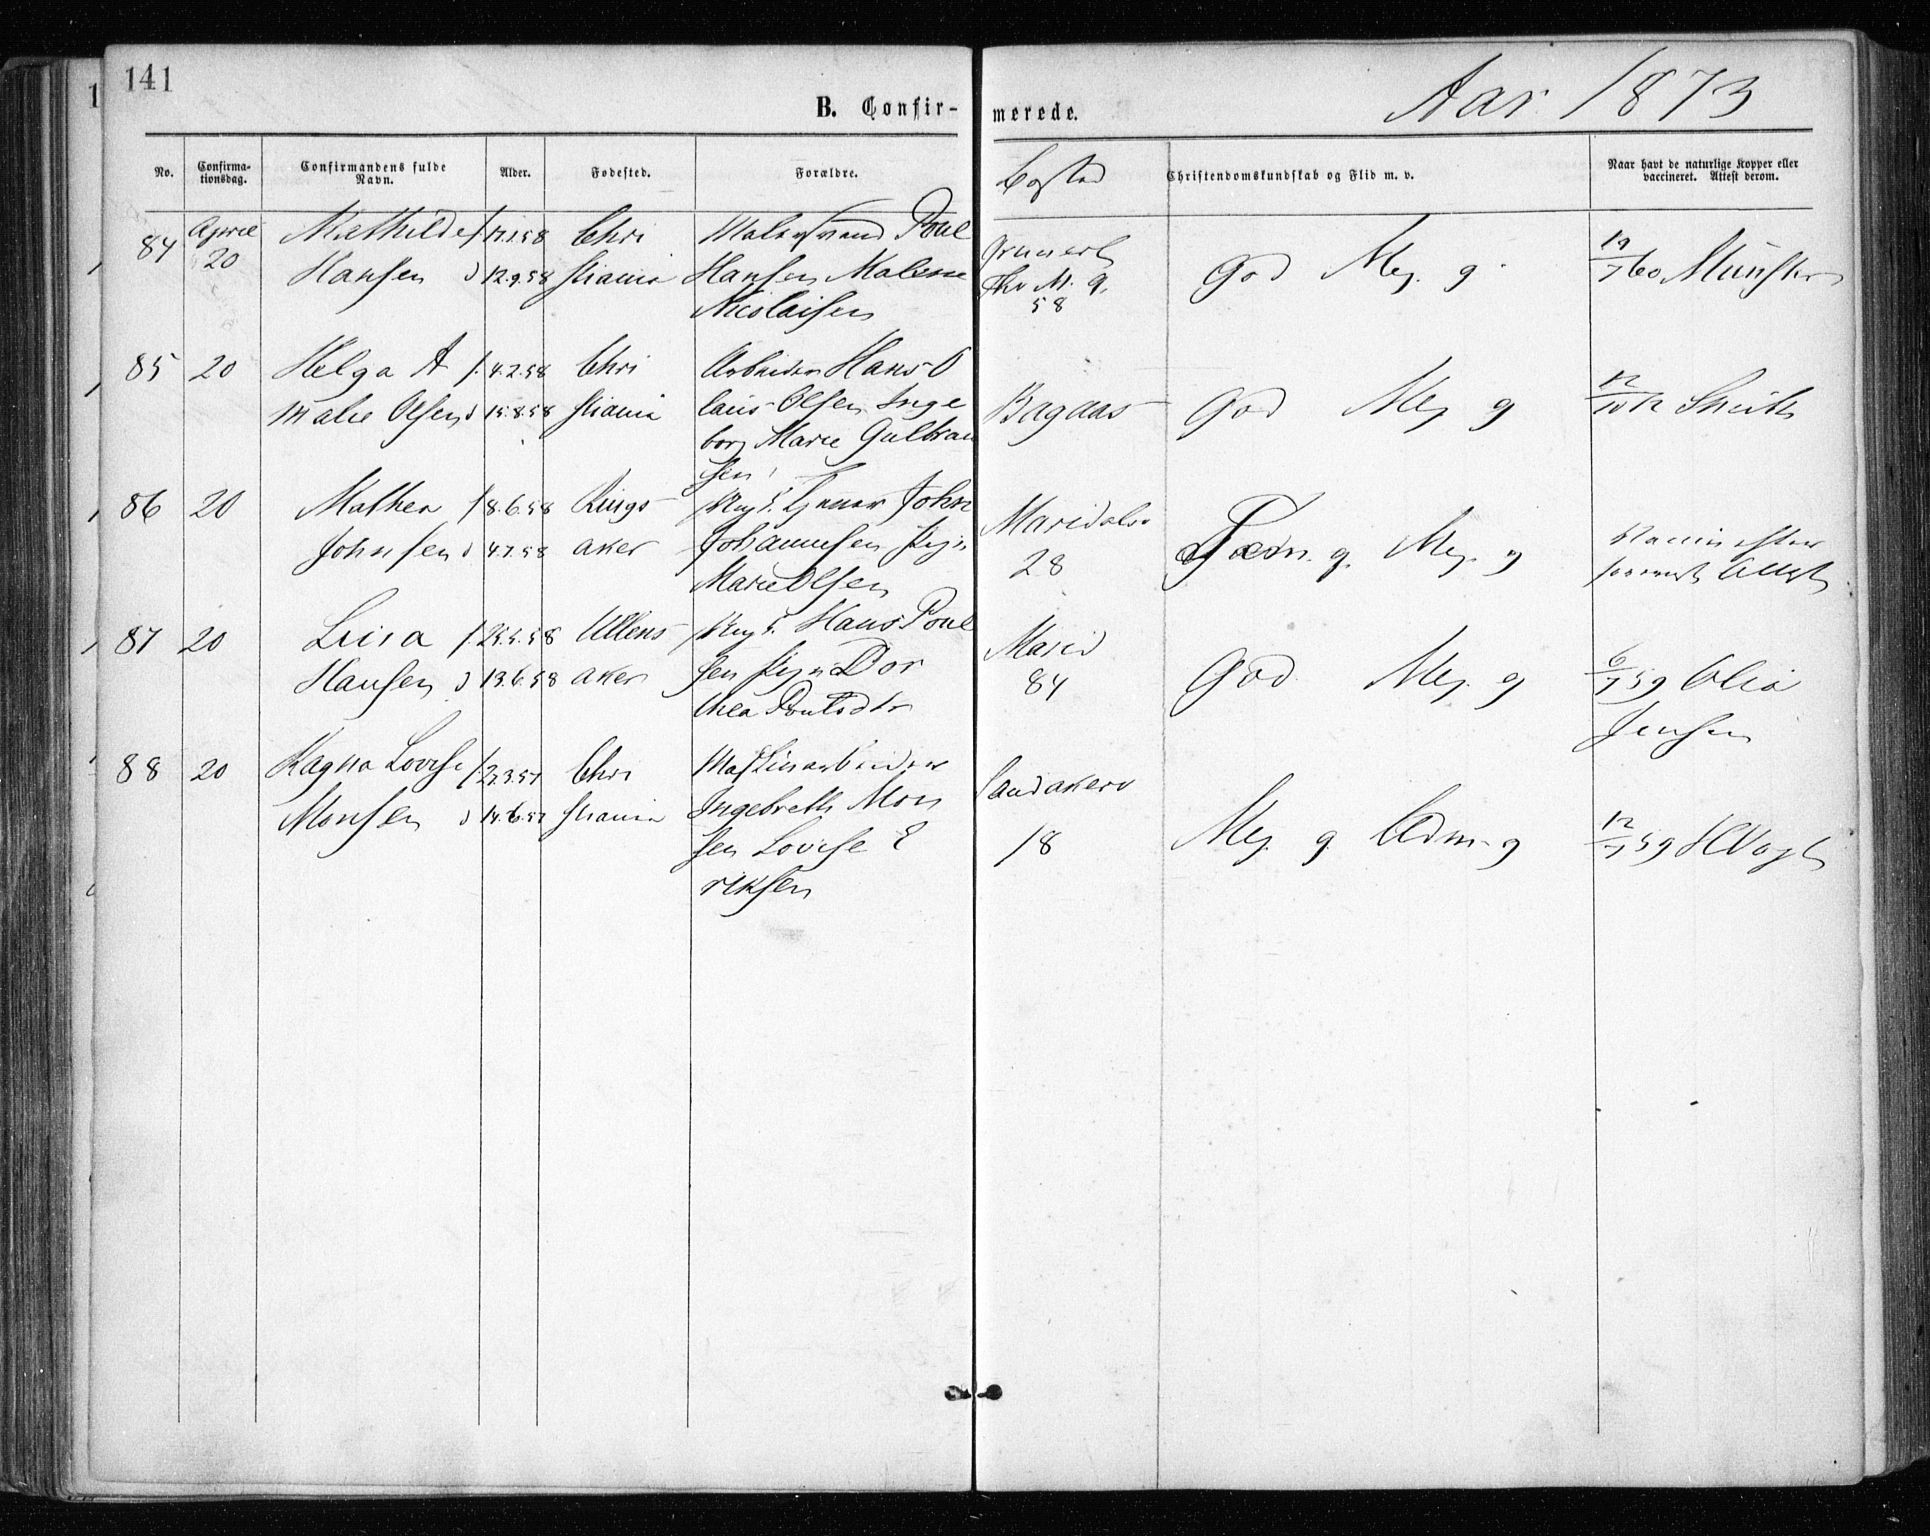 141
B. Confir-
merede.
Aar 1873
No.
Confirma-
tionsdag.
Confirmandens fulde
Navn.
Alder.
Fødested.
Forældre.
Bosted
Christendomskundskab og Flid m. v.
Naar havt de naturlige Kopper eller
vaccineret. Attest derom.
84
April
20
Mathilde
Hansen
f 17.1.58
d 12.9.58
Chri
stiania
Malersvend Poul
Hansen Malene
Nicolaisen
M. g.
58
God Meg. g.
19/7 60 Münster
85
20
Helga A
malie Olsen
f. 4.2.58
d 15.8.58
Chri
stiania
Arbeider Hans O
laus Olsen Inge
borg Marie Gulbran
sen
Bagaas
God Meg g
12/10
86
20
Mathea
Johnsen
f 8.6.58
d 4.7.58
Rings
aker
John
Johannesen Pige
Marie Olsen
Maridalsv
28
g. Meg. g
87
20
Lisa
Hansen
f. 25.5.58
d 13.6.58
Ullens
aker
Hans Poul
sen Pige Dor
thea Poulsdtr
Marid
84
God Meg. g
6/7 59 Olia
Jensen
88
20
Ragna Lovise
Monsen
f. 27.3.57
d 14.6.57
Chri
stiania
Maskinarbeider
Ingebreth Mon
sen Lovise E
riksen
Sandakerv
18
Meg g. Udm. g
12/7 59 Vogt